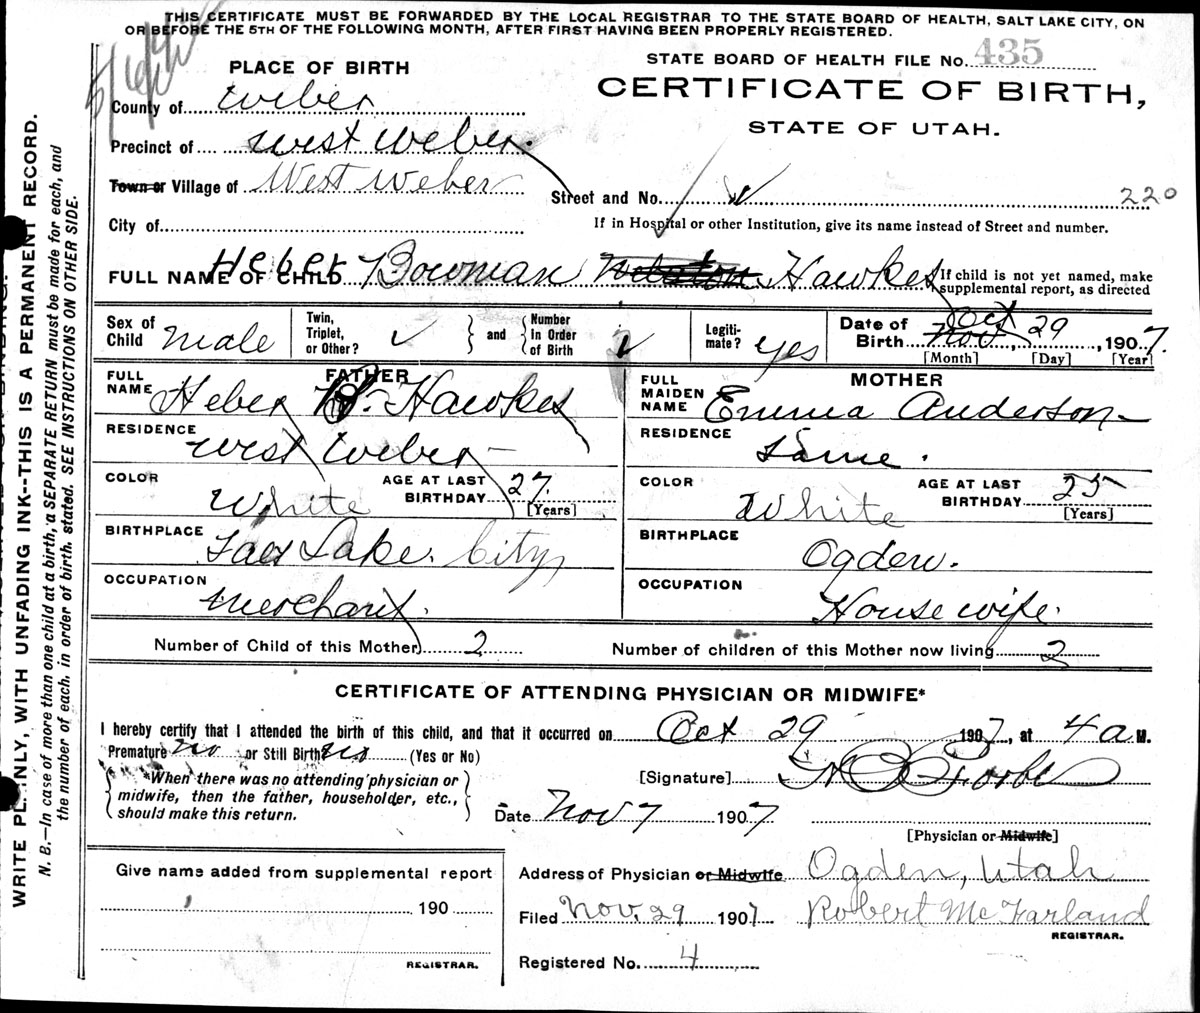 THIS CERTIFICATE MUST BE FORWARDED BY THE LOCAL REGISTRAR TO THE STATE BOARD OF HEALTH, SALT LAKE CITY, ON
OR BEFORE THE 5TH OF THE FOLLOWING MONTH, AFTER FIRST HAVING BEEN PROPERLY REGISTERED.
STATE BOARD OF HEALTH FILE No. 435
CERTIFICATE OF BIRTH,
STATE OF UTAH.
PLACE OF BIRTH
County of Weber
Precinct of West Weber.
Town or Village of West Weber
Street and No. 220
City of
If in Hospital or other Institution, give its name instead of Street and number.
FULL NAME OF CHILD Heber Bowman Hawkes
If child is not yet named, make
supplemental report, as directed
Sex of Child male
Twin, Triplet, or Other?
and
Number In Order of Birth
Legiti- mate? yes
Date of Birth Nov Oct 29, 1907.
[Month] [Day] [Year]
FATHER
FULL NAME Heber B. Hawkes
RESIDENCE West Weber
COLOR White
AGE AT LAST BIRTHDAY 27. [Years]
BIRTHPLACE Salt Lake. City
OCCUPATION Merchant.
MOTHER
FULL MAIDEN NAME Emma Anderson
RESIDENCE Same.
COLOR White
AGE AT LAST BIRTHDAY 25 [Years]
BIRTHPLACE Ogden.
OCCUPATION House wife.
Number of Child of this Mother 2
Number of children of this Mother now living 2
CERTIFICATE OF ATTENDING PHYSICIAN OR MIDWIFE*
I hereby certify that I attended the birth of this child, and that it occurred on Oct 29 1907, at 4 a M.
Premature no or Still Birth no (Yes or No)
*When there was no attending physician or
midwife, then the father, householder, etc.,
should make this return.
[Signature]
Date Nov 7 1907
[Physician or Midwife]
Give name added from supplemental report
190
REGISTRAR.
Address of Physician or Midwife Ogden, Utah
Filed Nov. 29 1907 Robert McFarland
REGISTRAR.
Registered No. 4
WRITE PLAINLY, WITH UNFADING INK--THIS IS A PERMANENT RECORD.
N. B.—In case of more than one child at a birth, a SEPARATE RETURN must be made for each, and
the number of each, in order of birth, stated. SEE INSTRUCTIONS ON OTHER SIDE.